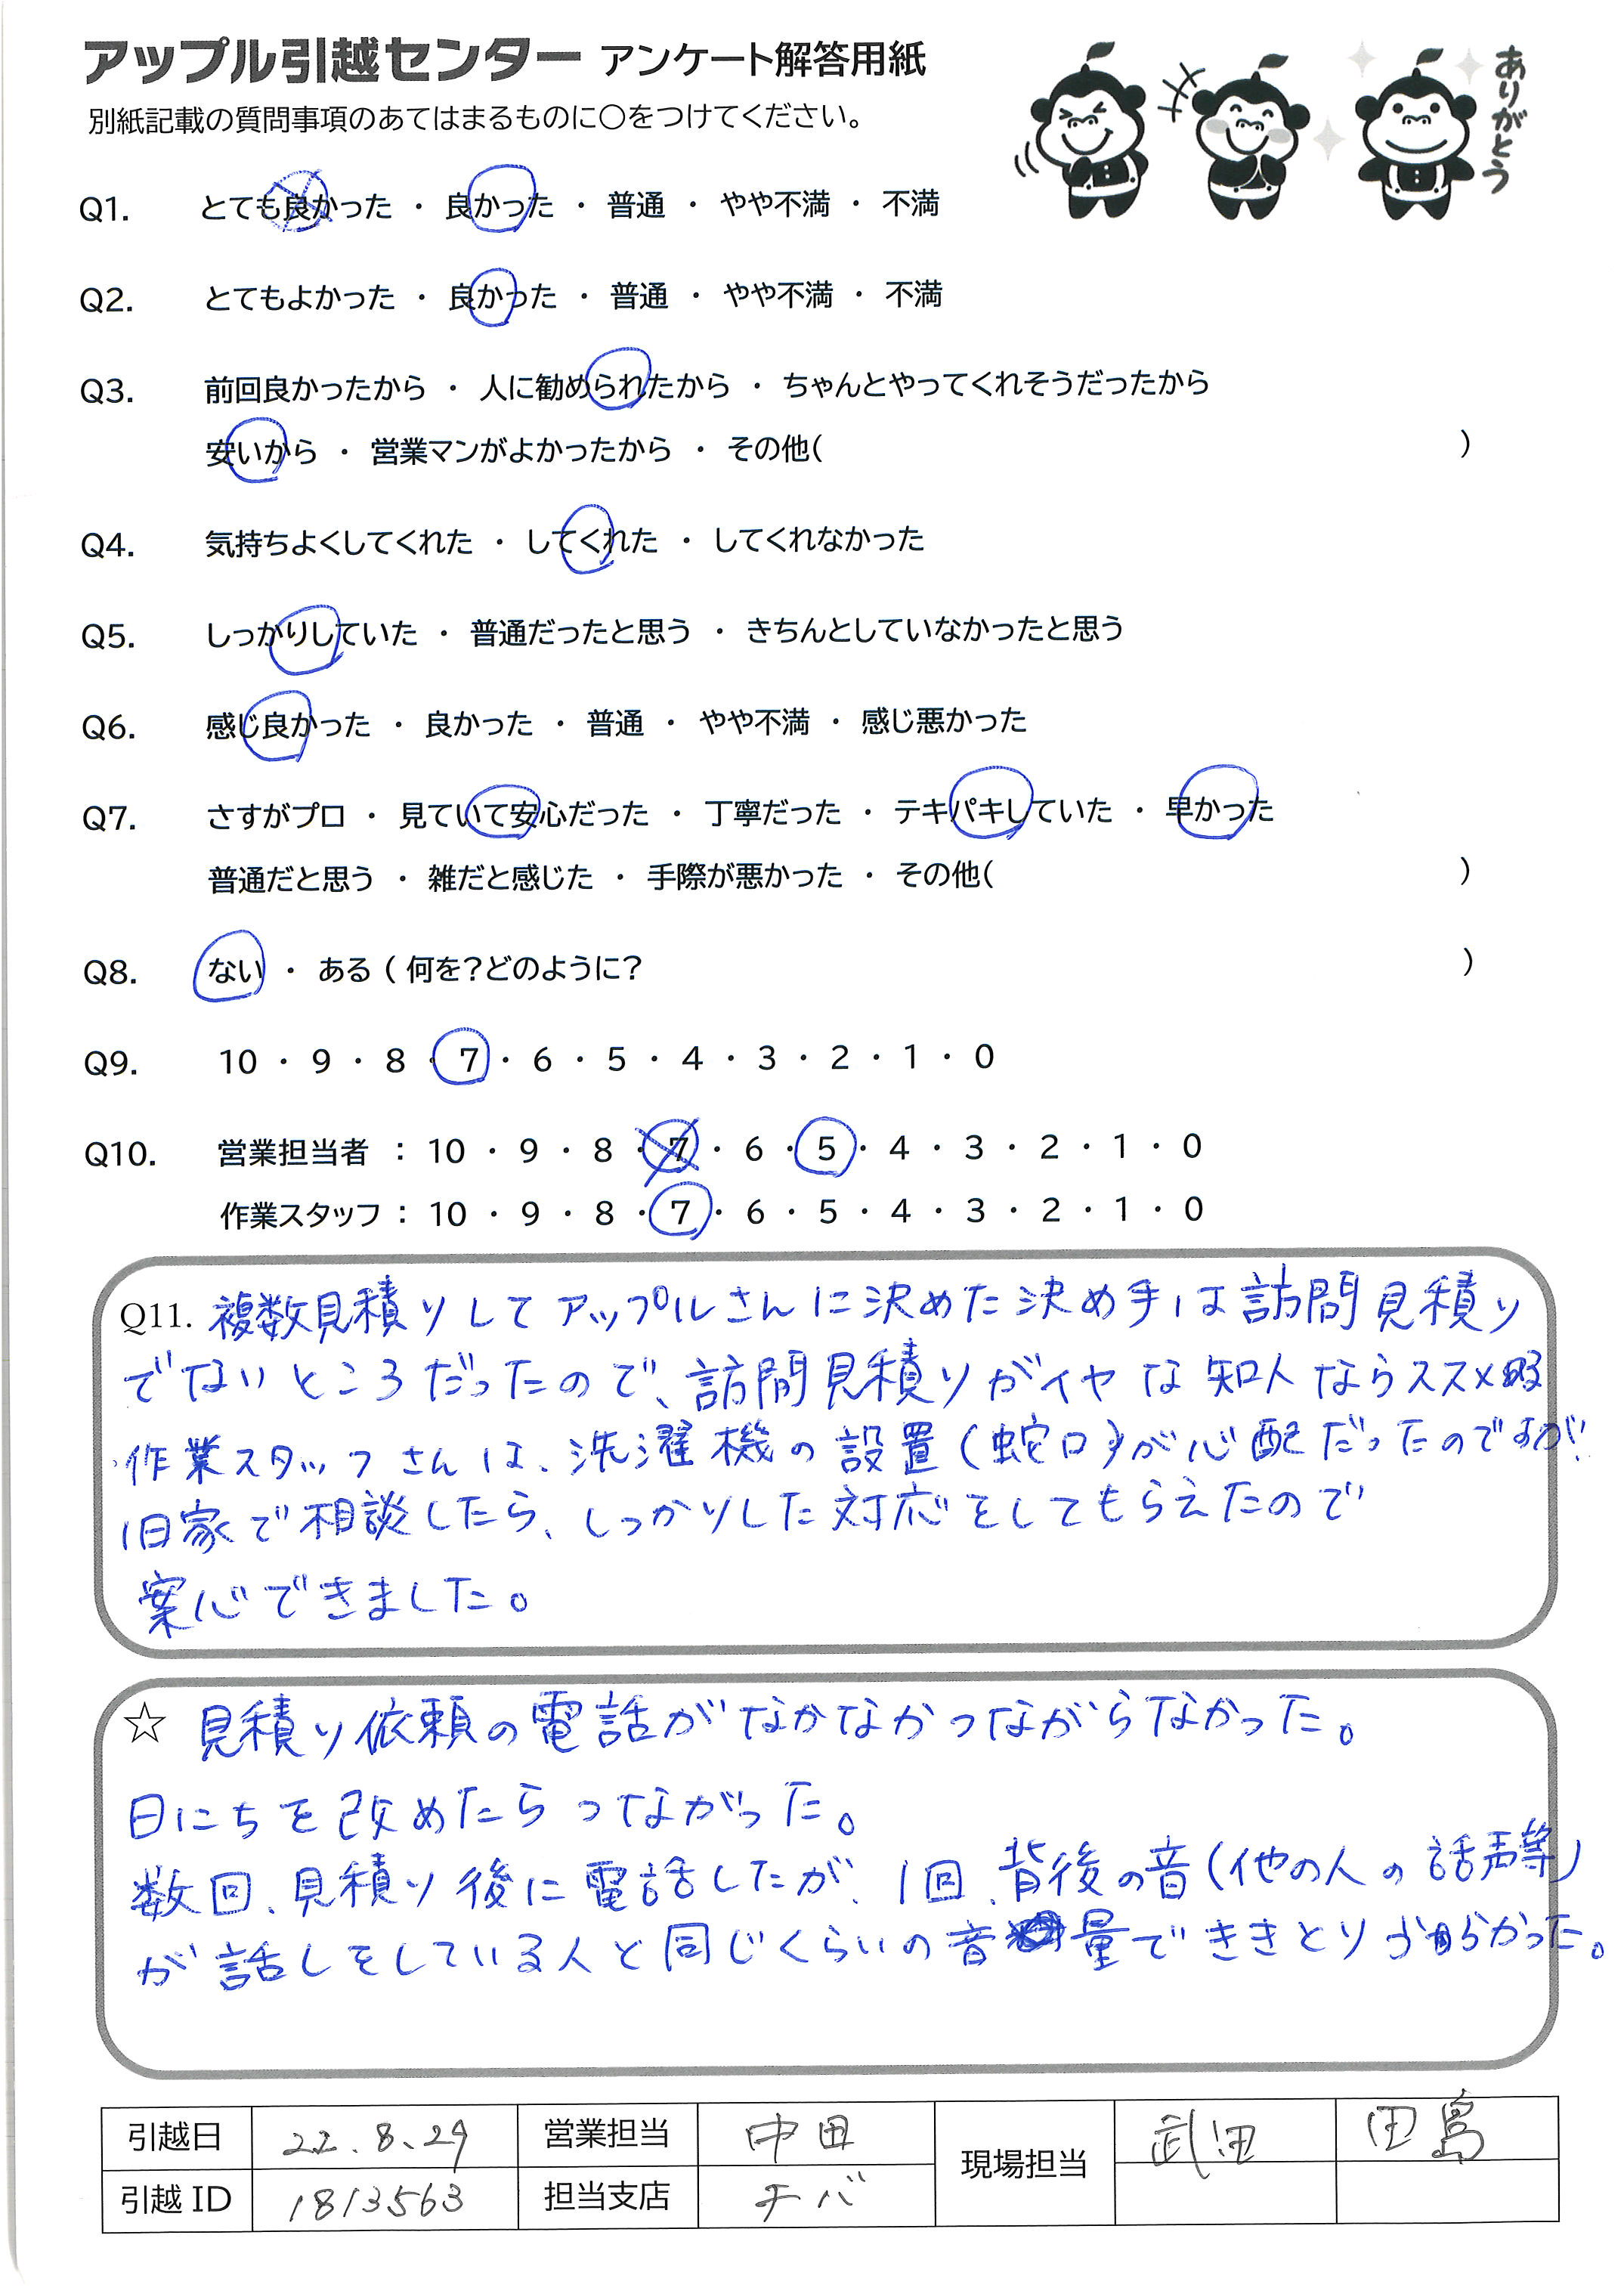 アップル引越センター アンケート解答用紙
別紙記載の質問事項のあてはまるものに○をつけてください。
ありがとう
Q1. とても良かった ・ 良かった ・ 普通 ・ やや不満 ・ 不満
Q2. とてもよかった ・ 良かった ・ 普通 ・ やや不満 ・ 不満
Q3. 前回良かったから ・ 人に勧められたから ・ ちゃんとやってくれそうだったから
安いから ・ 営業マンがよかったから ・ その他( )
Q4. 気持ちよくしてくれた ・ してくれた ・ してくれなかった
Q5. しっかりしていた ・ 普通だったと思う ・ きちんとしていなかったと思う
Q6. 感じ良かった ・ 良かった ・ 普通 ・ やや不満 ・ 感じ悪かった
Q7. さすがプロ ・ 見ていて安心だった ・ 丁寧だった ・ テキパキしていた ・ 早かった
普通だと思う ・ 雑だと感じた ・ 手際が悪かった ・ その他( )
Q8. ない ・ ある ( 何を?どのように? )
Q9. 10 ・ 9 ・ 8 ・ 7 ・ 6 ・ 5 ・ 4 ・ 3 ・ 2 ・ 1 ・ 0
Q10. 営業担当者 : 10 ・ 9 ・ 8 ・ 7 ・ 6 ・ 5 ・ 4 ・ 3 ・ 2 ・ 1 ・ 0
作業スタッフ : 10 ・ 9 ・ 8 ・ 7 ・ 6 ・ 5 ・ 4 ・ 3 ・ 2 ・ 1 ・ 0
Q11. 複数見積りしてアップルさんに決めた決め手は訪問見積り
でないところだったので、訪問見積りがイヤな知人ならススメ
作業スタッフさんは、洗濯機の設置(蛇口)が心配だったのですが、
旧家で相談したら、しっかりした対応をしてもらえたので
案心できました。
☆ 見積り依頼の電話がなかなかつながらなかった。
日にちを改めたらつながった。
数回、見積り後に電話したが、1回、背後の音(他の人の話声等)
が話しをしている人と同じくらいの音量でききとりづらかった。
引越日 22.8.29 営業担当 中田 現場担当 武田 田島
引越 ID 1813563 担当支店 チバ